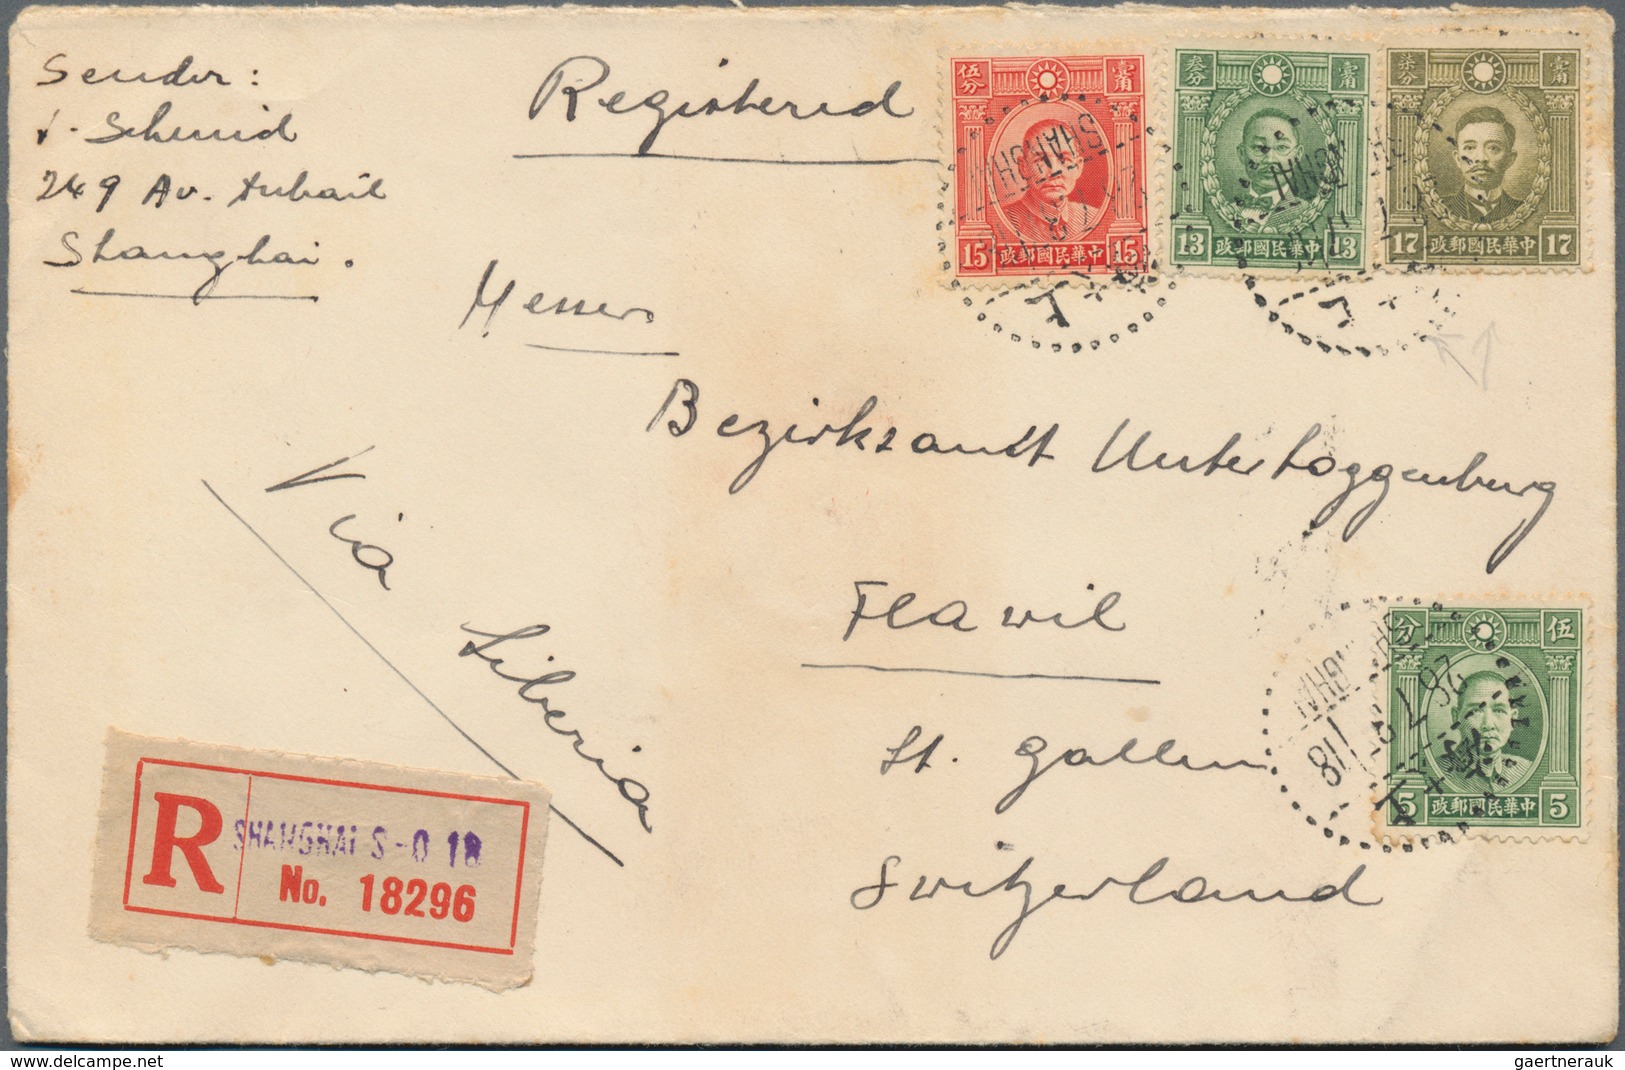 Sender:
Schmid
249 Av.
Shanghai.
Registered
伍分 壹角
15 中華民國郵政 15
叁分 壹角
13 中華民國郵政 13
柒分 壹角
17 中華民國郵政 17
SHANGHAI
Messrs
Bezirksamt Untertoggenburg
Flawil
St. Gallen
Switzerland
Via Siberia
分 伍
5 中華民國郵政 5
R SHANGHAI S-O 18
No. 18296
delcampe.net
gaertnerauk